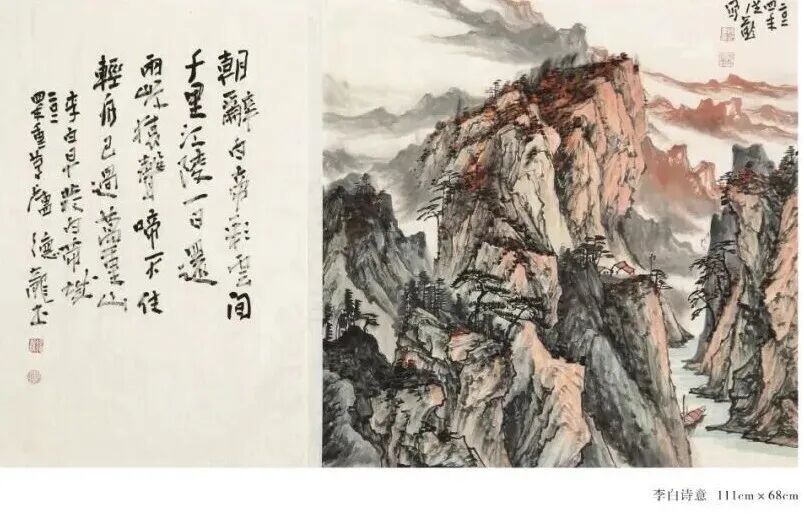 朝辭白帝彩雲间
千里江陵一日還
兩岸猿聲啼不住
輕舟已過萬重山
李白早發白帝城
德龍书
二〇一四年
李白诗意 111cm×68cm